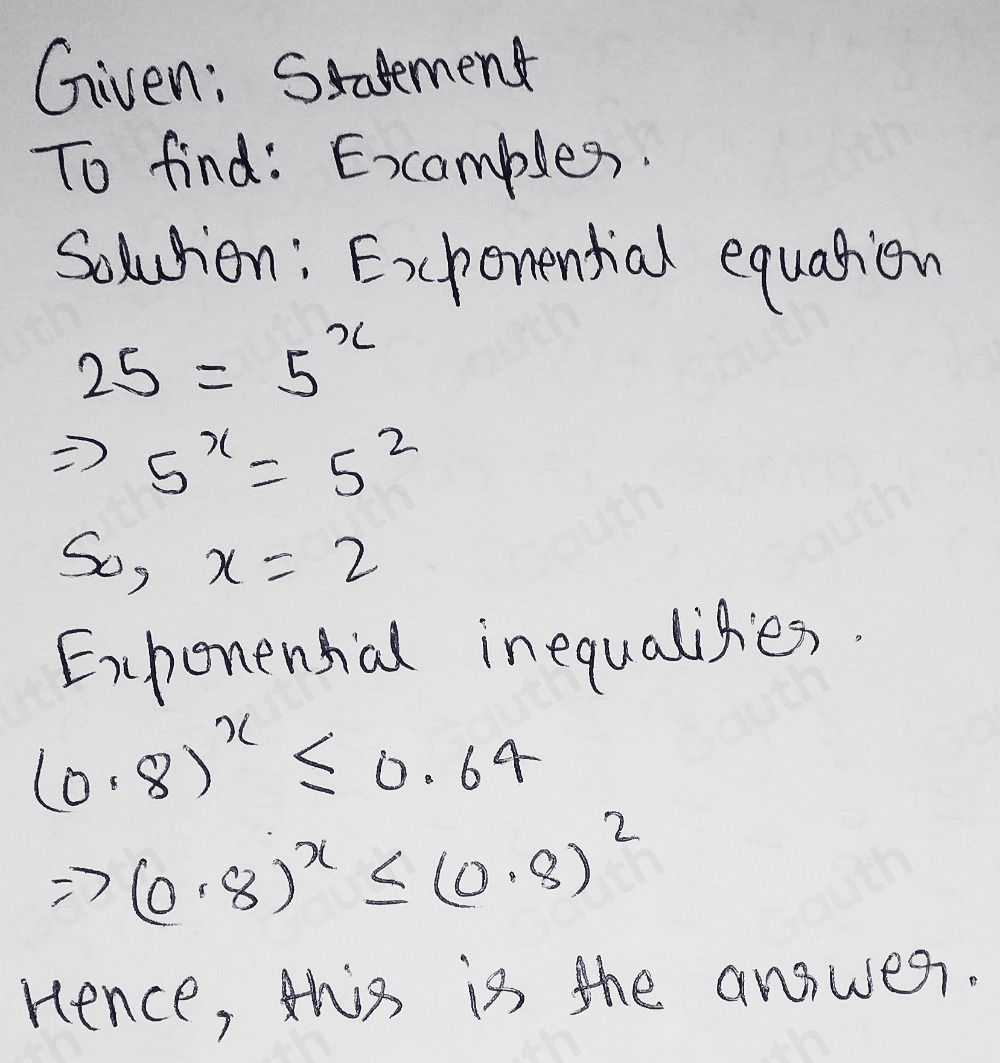 Given: Statement
To find: Examples.
Solution: Exponential equation
25 = 5^x
⇒ 5^x = 5^2
So, x = 2
Exponential inequalities.
(0.8)^x ≤ 0.64
⇒ (0.8)^x ≤ (0.8)^2
Hence, this is the answer.